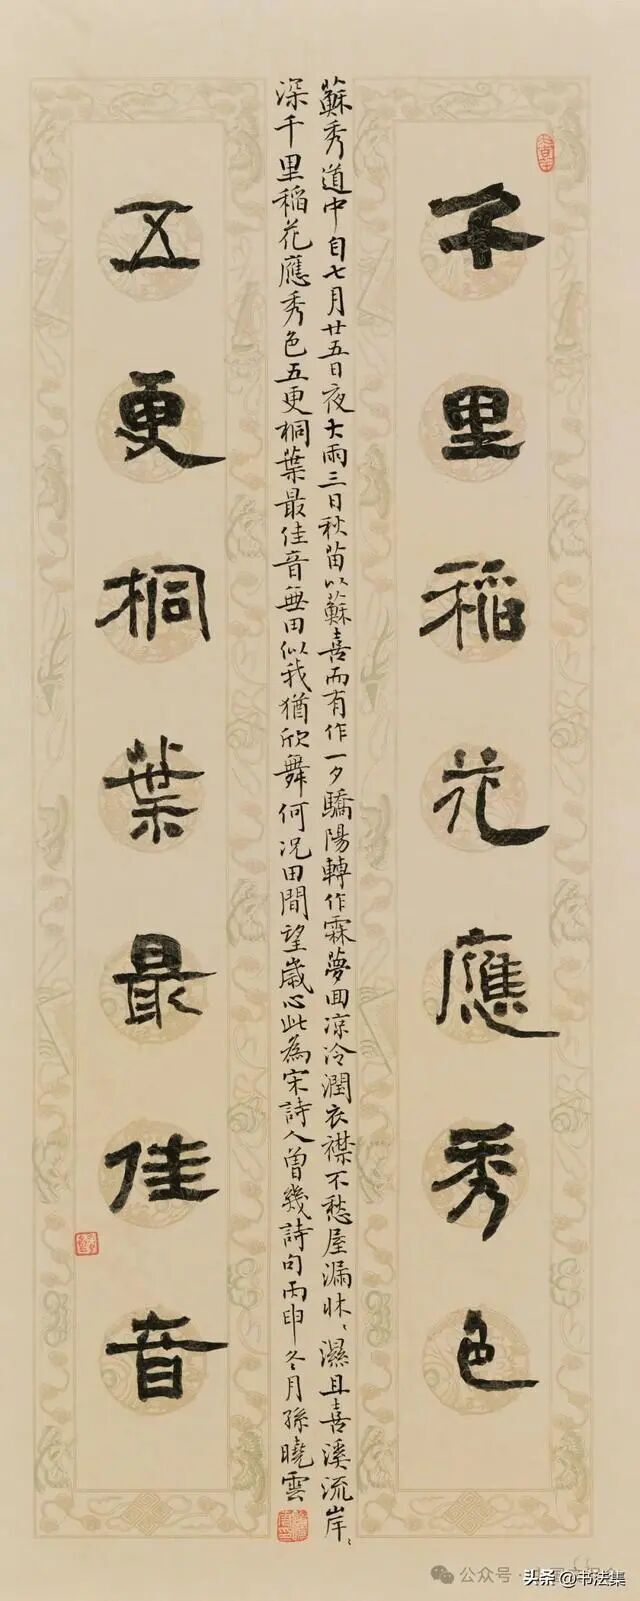 千里稻花應秀色
蘇秀道中自七月廿五日夜大雨三日秋苗以蘇喜而有作一夕驕陽轉作霖夢回涼冷潤衣襟不愁屋漏牀、濕且喜溪流岸、
深千里稻花應秀色五更桐葉最佳音無田似我猶欣舞何況田間望歲心此為宋詩人曾幾詩句丙申冬月孫曉雲
五更桐葉最佳音
公众号
头条 @书法集